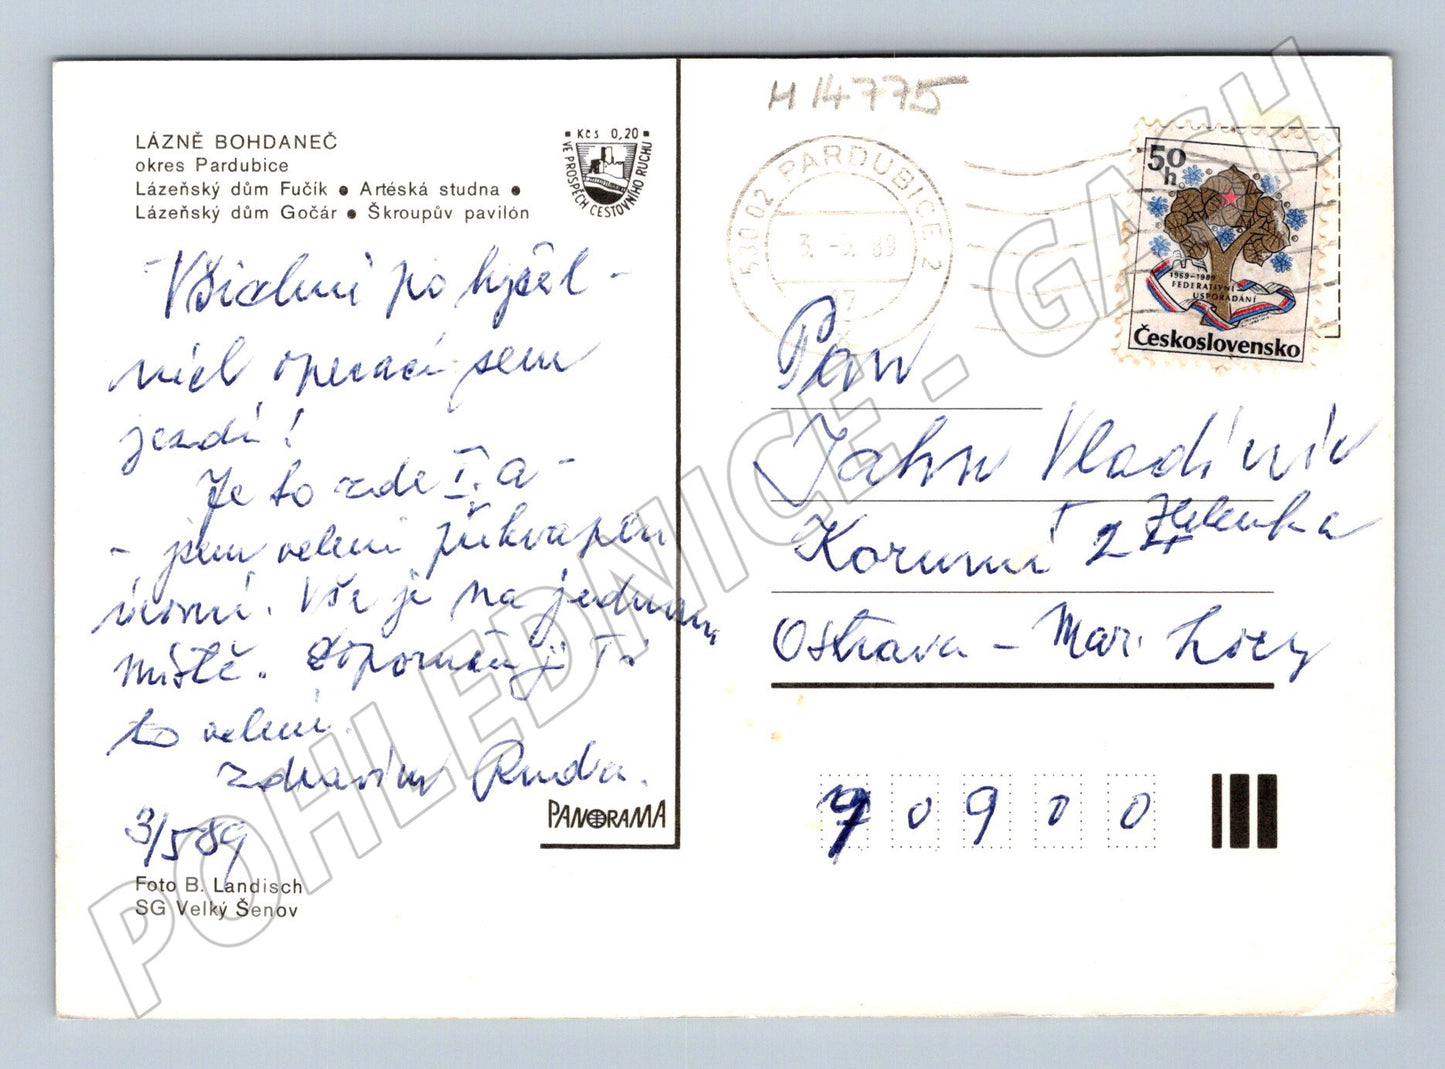 LÁZNĚ BOHDANEČ
okres Pardubice
Lázeňský dům Fučík ● Artéská studna ●
Lázeňský dům Gočár ● Škroupův pavilón
Kčs 0,20
VE PROSPĚCH CESTOVNÍHO RUCHU
- Všichni po kyčel -
ních operací sem
jezdí!
Je to zde I. a -
- jsem velmi překvapen
úrovní. Vše je na jednom
místě. Doporučuji Ti
to velmi.
Zdravím Ruda.
3/5 89
PANORAMA
Foto B. Landisch
SG Velký Šenov
H 14775
530 02 PARDUBICE 2
3.-5.89
50
h
1969-1989
FEDERATIVNÍ
USPOŘÁDÁNÍ
Československo
Pan
Jahn Vladimír
Helenka
Korunní 24
Ostrava - Mar. Hory
7 0 9 0 0
POHLEDNICE - GASH